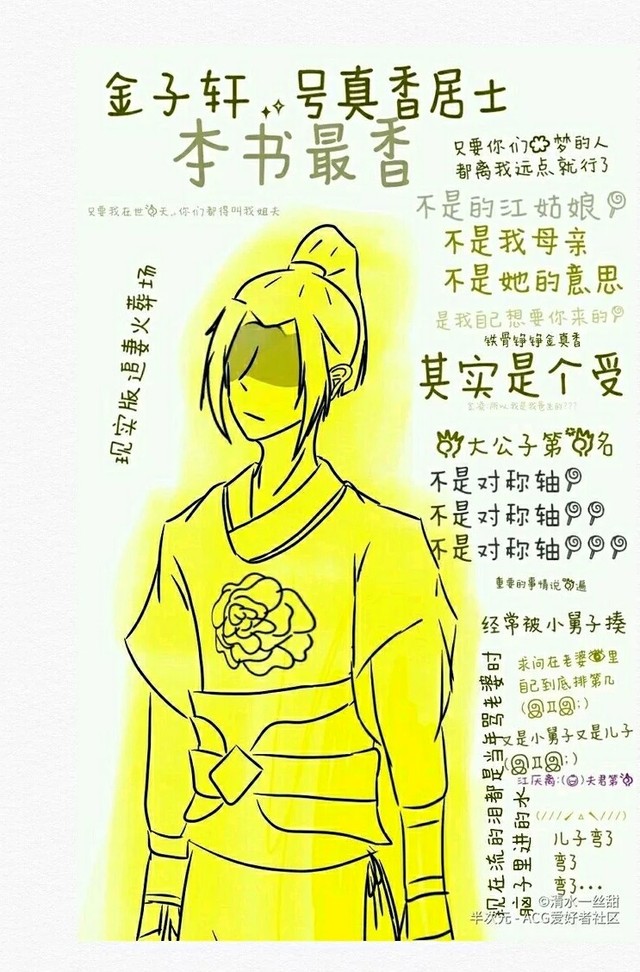 金子轩 号真香居士
本书最香
只要你们 梦的人
都离我远点就行了
只要我在世 天,你们都得叫我姐夫
不是的江姑娘
不是我母亲
不是她的意思
是我自己想要你来的
铁骨铮铮金真香
其实是个受
现实版追妻火葬场
大公子第 名
不是对称轴
不是对称轴
不是对称轴
重要的事情说 遍
经常被小舅子揍
求问在老婆 里
自己到底排第几
又是小舅子又是儿子
江厌离:( )夫君第
现在流的泪都是当年骂老婆时
脑子里进的水
儿子弯了
弯了
弯了...
©渭水一丝甜
半次元 - ACG爱好者社区